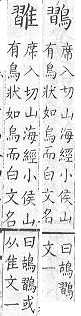 𪄶
席入切山海經小侯山
有鳥狀如烏而白文名
曰鴣𪄶
文一
席入切山海經小侯山
有鳥狀如烏而白文名
曰鴣𪄶或
从隹文一